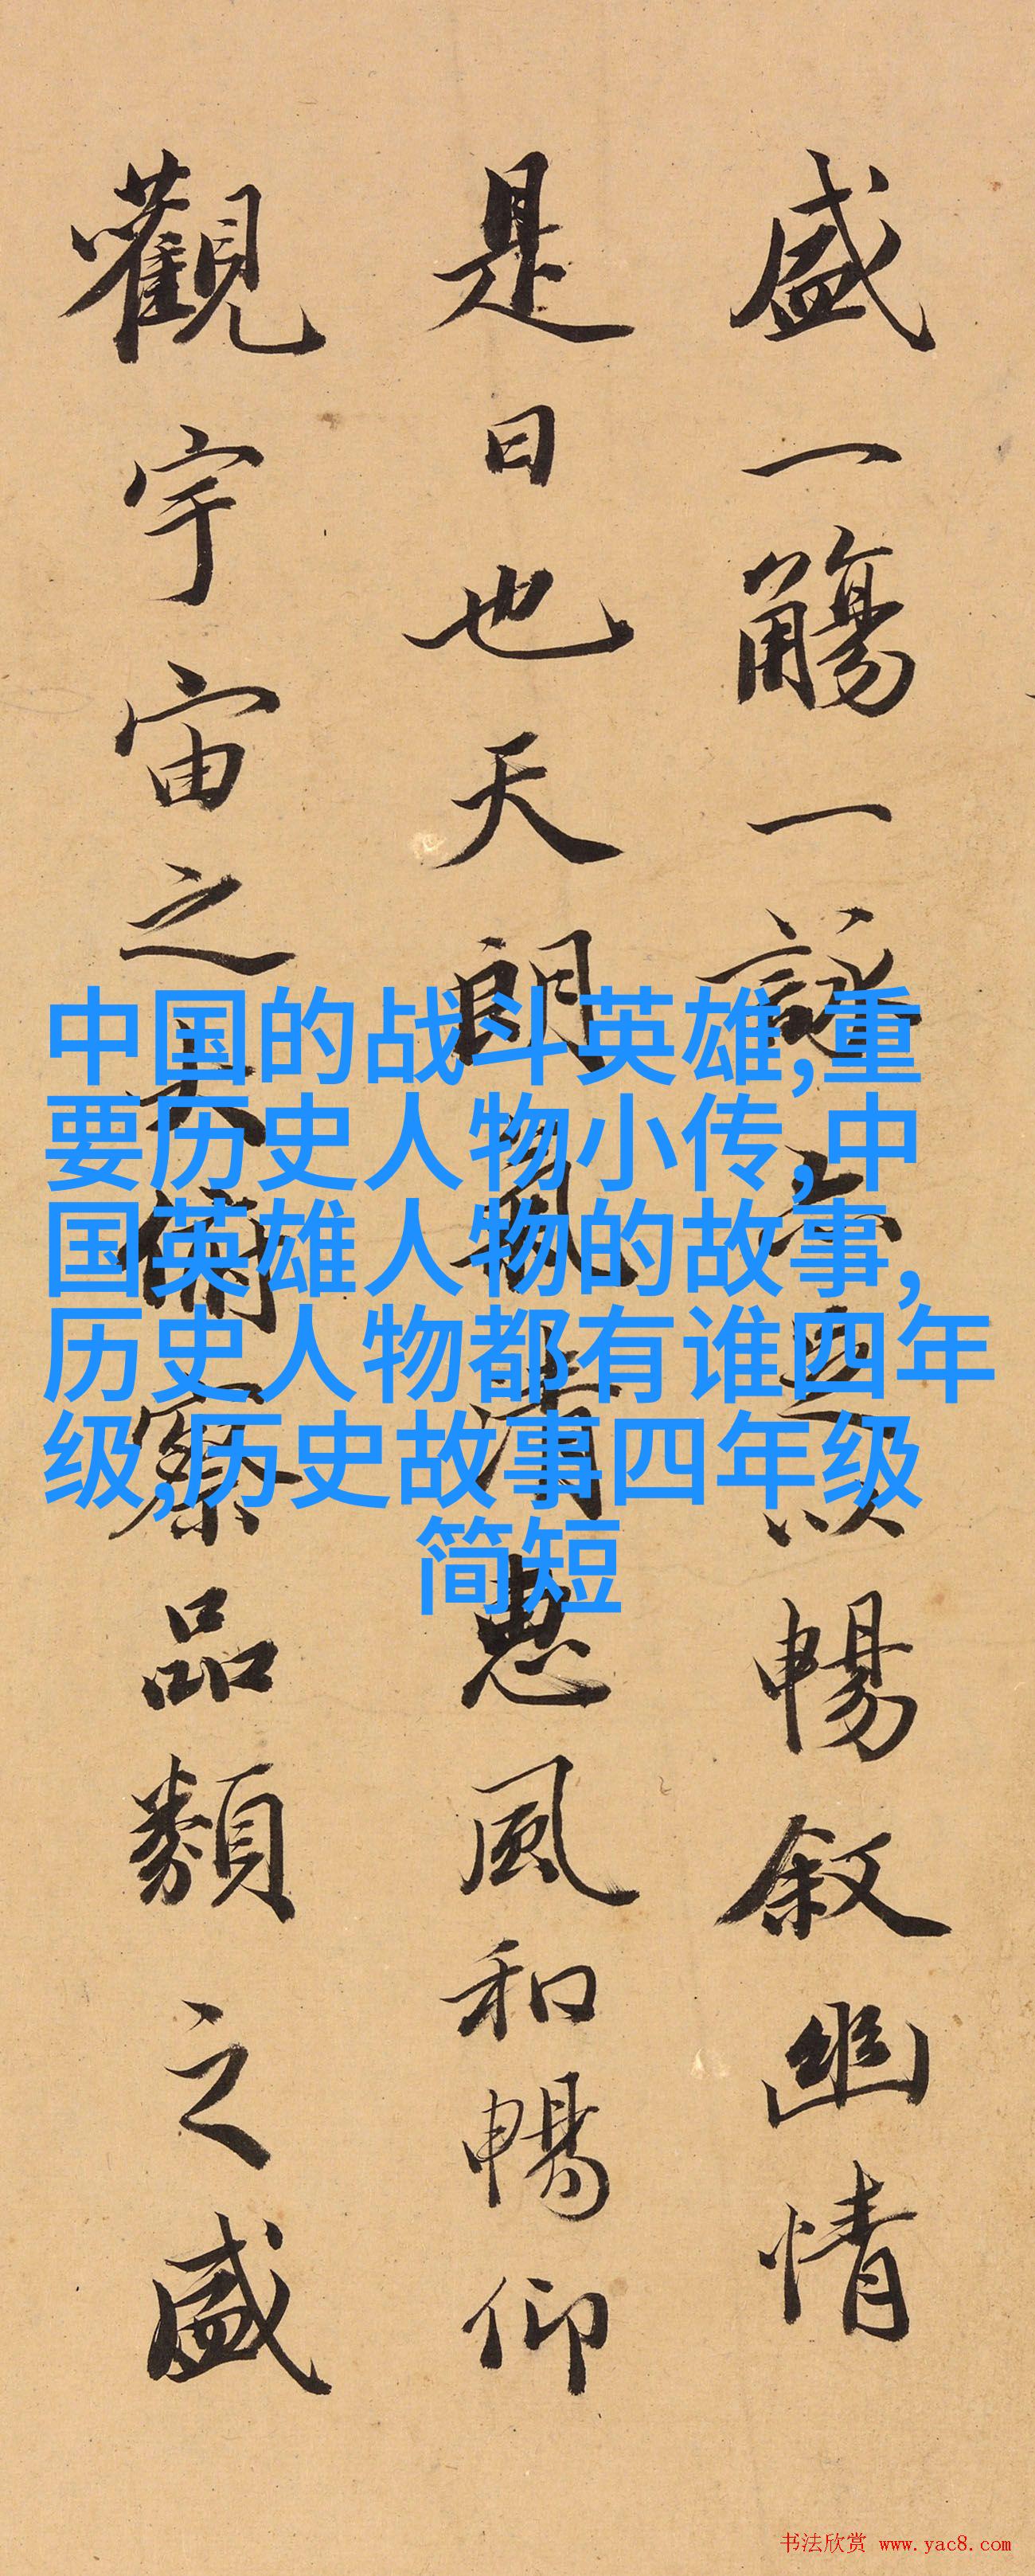 盛一觴一詠亦足以暢叙幽情
是日也天朗氣清惠風和暢仰
觀宇宙之大俯察品類之盛
中国的战斗英雄,重
要历史人物小传,中
国英雄人物的故事,
历史人物都有谁四年
级,历史故事四年级
简短
书法欣赏 www.yac8.com